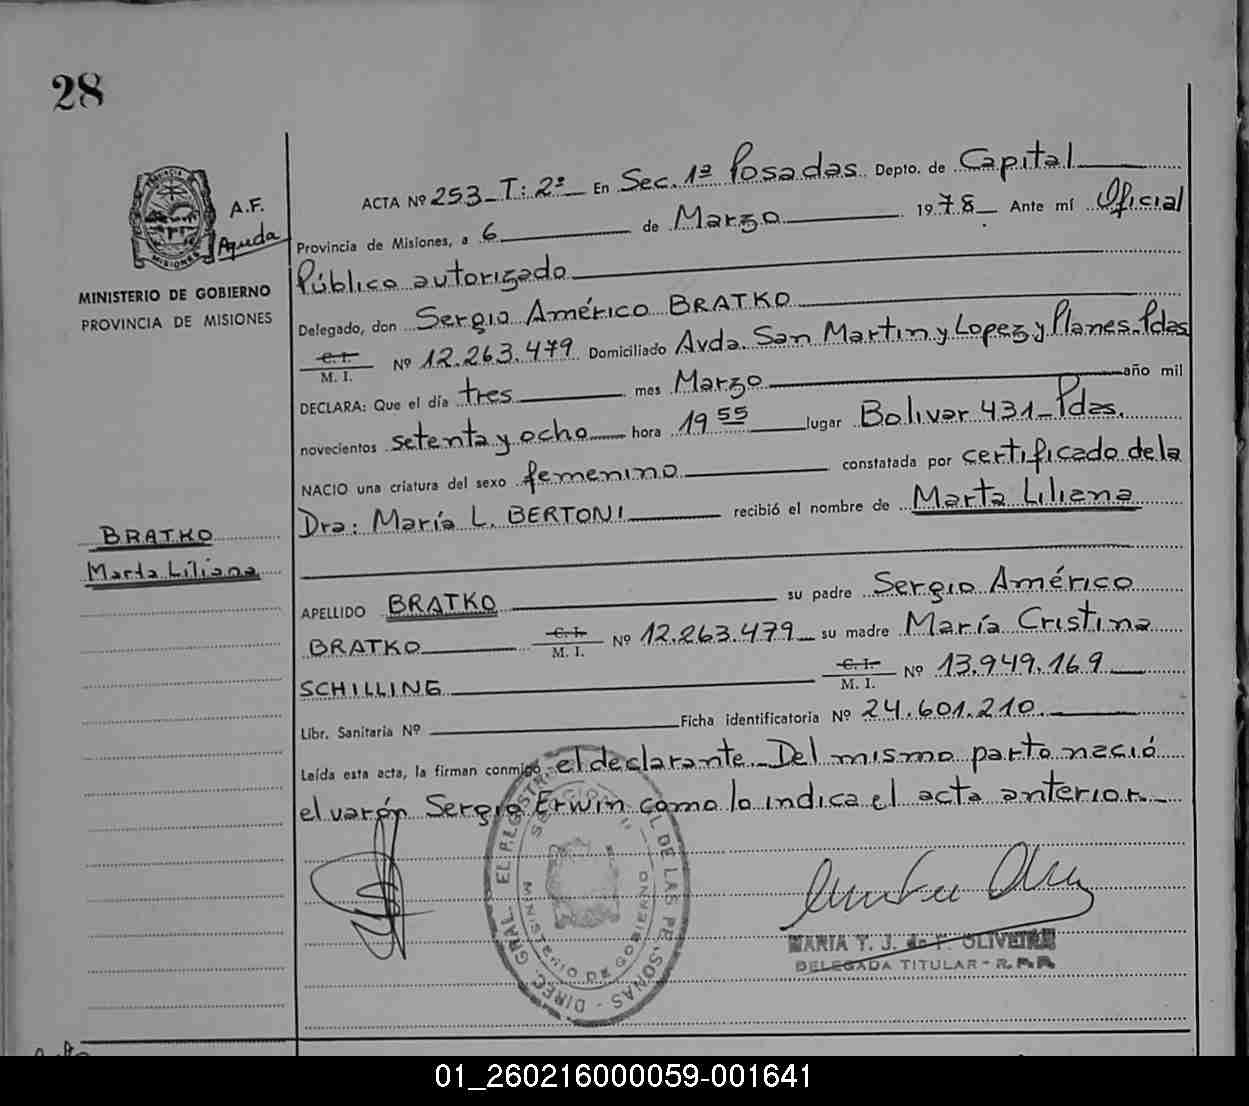 28
A.F.
Aguda
MINISTERIO DE GOBIERNO
PROVINCIA DE MISIONES
ACTA Nº 253_ T: 2º _ En Sec. 1ª Posadas Depto. de Capital
Provincia de Misiones, a 6 de Marzo 1978_ Ante mí Oficial
Público autorizado
Delegado, don Sergio Américo BRATKO
C. I.
M. I. Nº 12.263.479 Domiciliado Avda. San Martin y Lopez y Planes. Pdas
DECLARA: Que el día tres mes Marzo año mil
novecientos setenta y ocho hora 19 55 lugar Bolivar 431_ Pdas.
NACIO una criatura del sexo femenino constatada por certificado de la
Dra: María L. BERTONI recibió el nombre de Marta Liliana
BRATKO
Marta Liliana
APELLIDO BRATKO su padre Sergio Américo
BRATKO C. I. M. I. Nº 12.263.479_ su madre María Cristina
SCHILLING C. I. M. I. Nº 13.949.169
Libr. Sanitaria Nº Ficha identificatoria Nº 24.601.210.
Leída esta acta, la firman conmigo el declarante_ Del mismo parto nació
el varón Sergio Erwin como lo indica el acta anterior._
MINISTERIO DE GOBIERNO
MARIA Y. J. de F. OLIVEIRA
DELEGADA TITULAR - R.P.P.
01_260216000059-001641